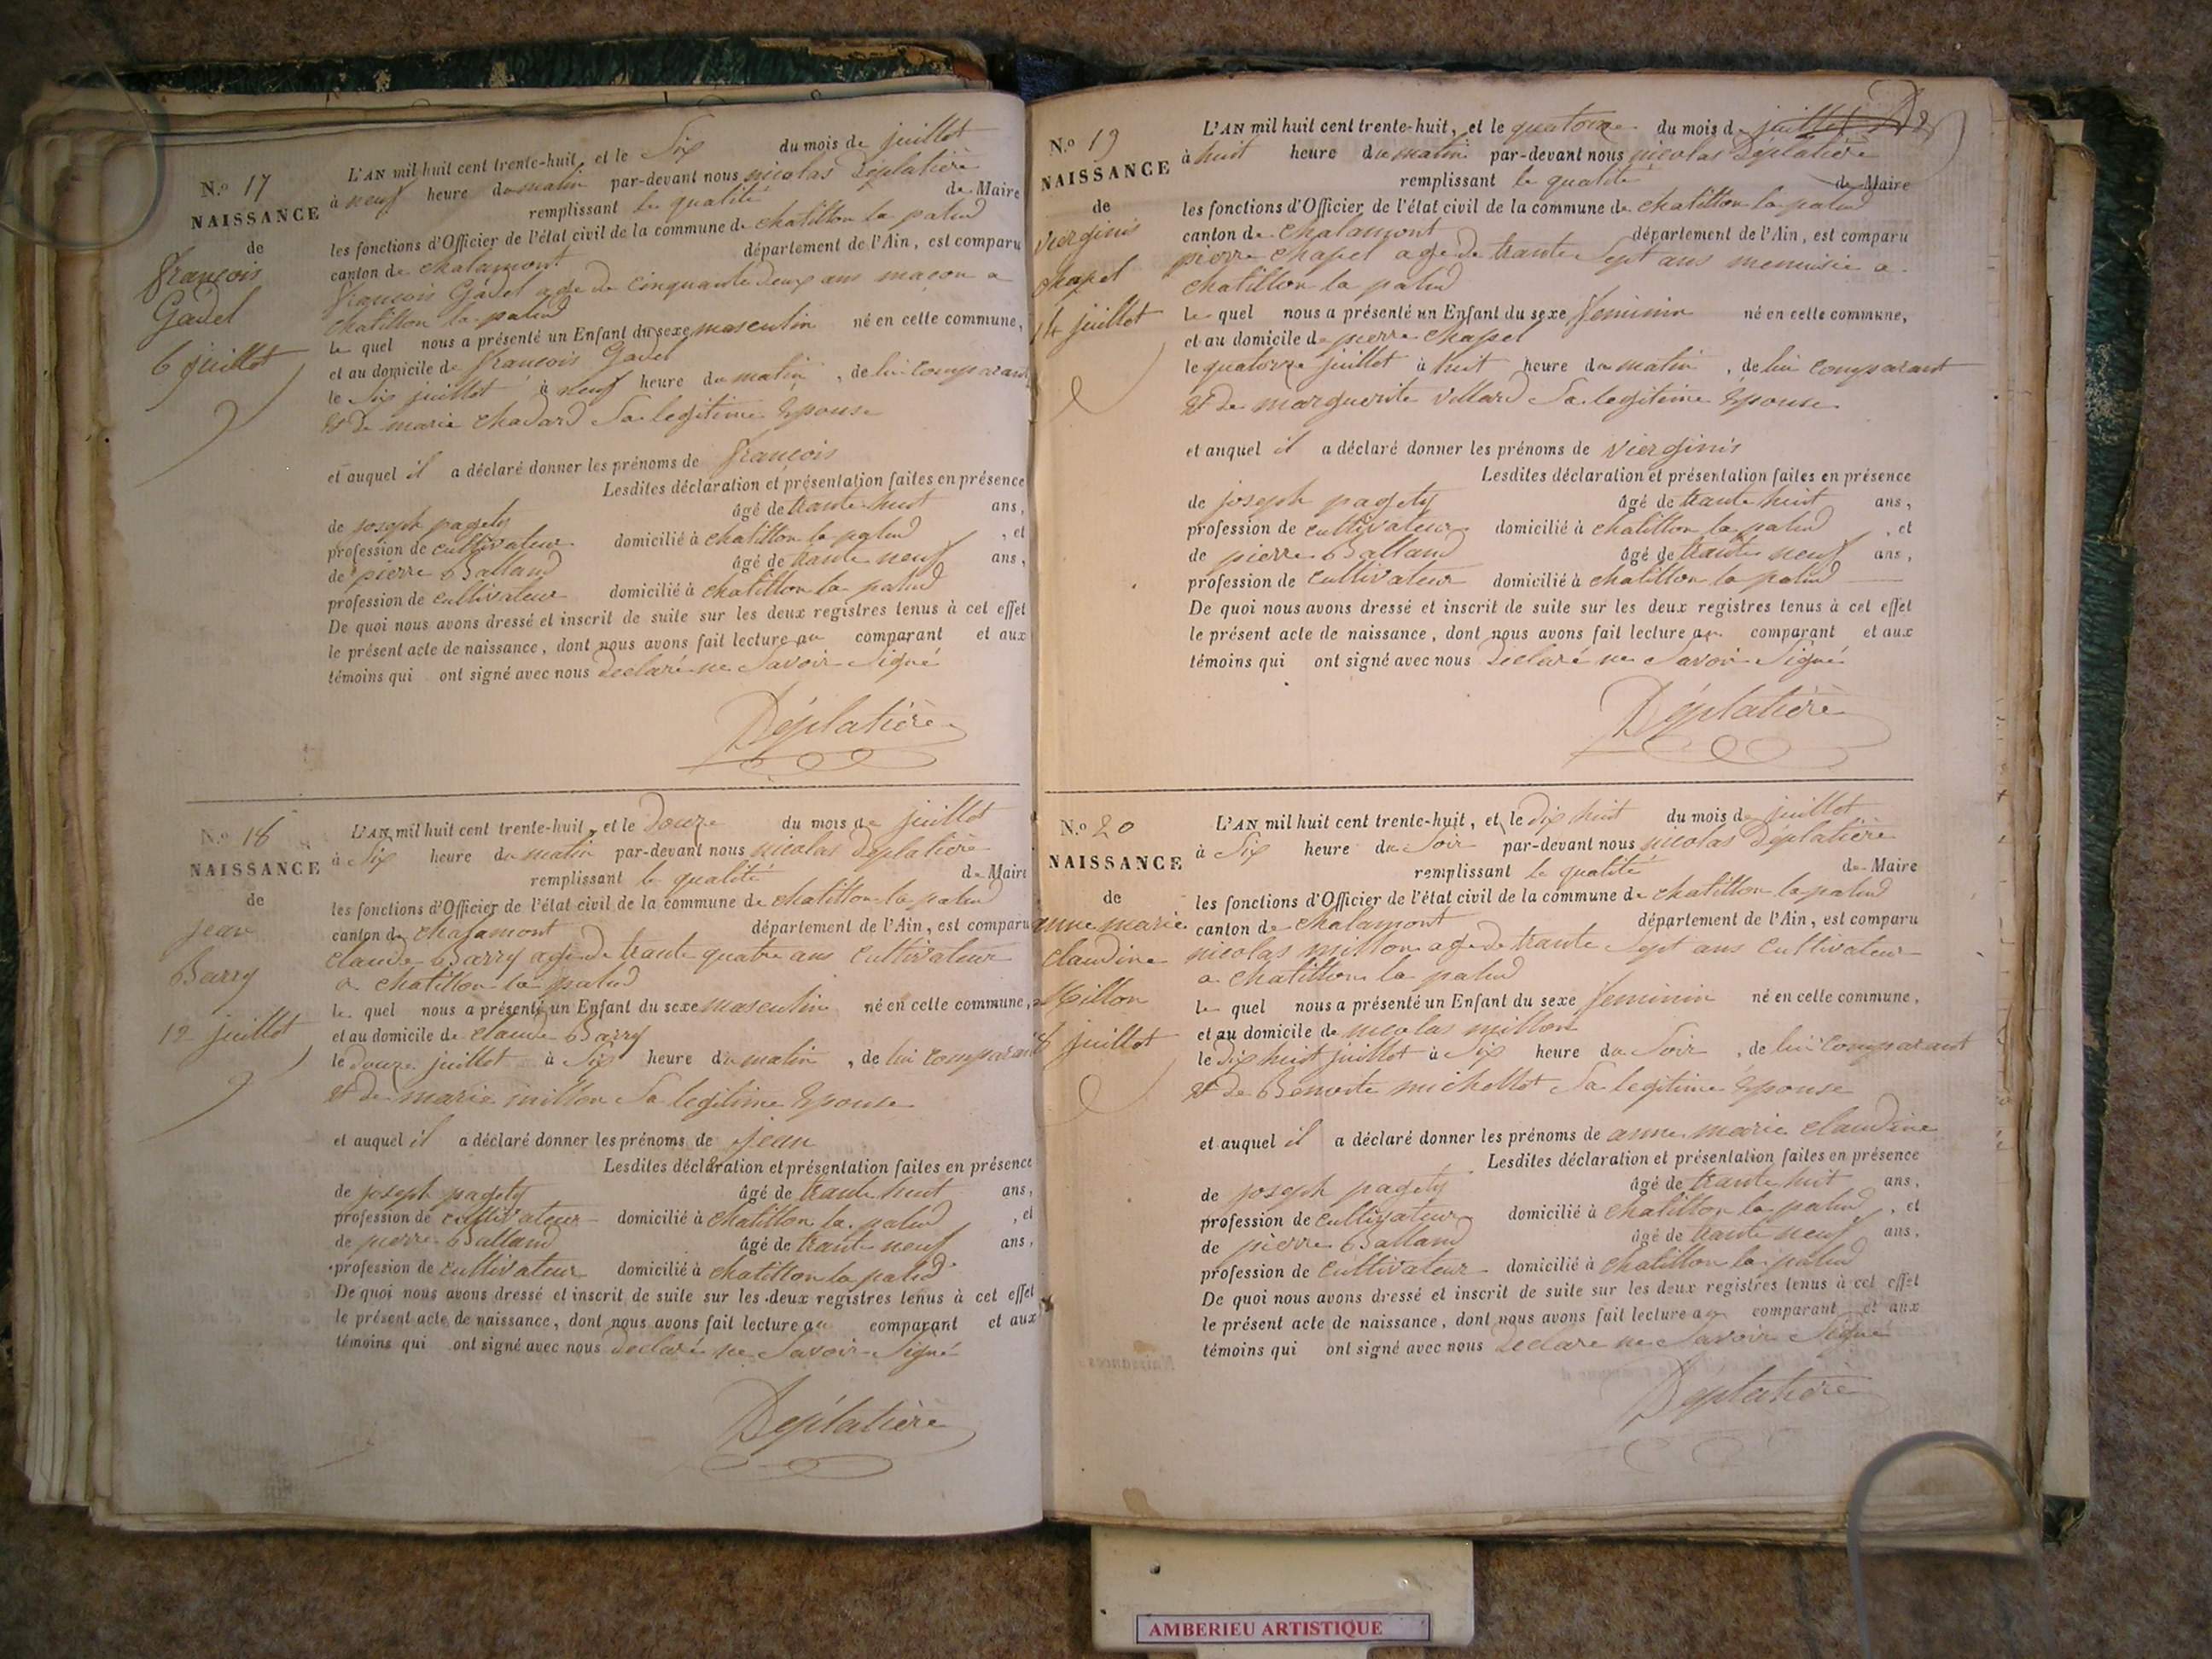 N.o 17
NAISSANCE
de
françois
Gadel
6 juillet
L'AN mil huit cent trente-huit, et le Six du mois de juillet
à neuf heure du matin par-devant nous nicolas Déplatière
remplissant la qualité de Maire
les fonctions d'Officier de l'état civil de la commune de chatillon la palud
canton de chalamont département de l'Ain, est comparu
françois Gadel age de cinquante deux ans maçon a
chatillon la palud
le quel nous a présenté un Enfant du sexe masculin né en cette commune,
et au domicile de françois Gadel
le Six juillet à neuf heure du matin, de lui comparant
et de marie chadard Sa legitime Epouse
et auquel il a déclaré donner les prénoms de françois
Lesdites déclaration et présentation faites en présence
de joseph pagety âgé de trante huit ans,
profession de cultivateur domicilié à chatillon la palud, et
de pierre Balland âgé de trante neuf ans,
profession de cultivateur domicilié à chatillon la palud
De quoi nous avons dressé et inscrit de suite sur les deux registres tenus à cet effet
le présent acte de naissance, dont nous avons fait lecture au comparant et aux
témoins qui ont signé avec nous Declaré ne Savoir Signé
Déplatière
N.o 18
NAISSANCE
de
jean
Barry
12 juillet
L'AN mil huit cent trente-huit, et le Douze du mois de juillet
à Six heure du matin par-devant nous nicolas Déplatière
remplissant la qualité de Maire
les fonctions d'Officier de l'état civil de la commune de chatillon la palud
canton de chalamont département de l'Ain, est comparu
claude Barry age de trante quatre ans cultivateur
a chatillon la palud
le quel nous a présenté un Enfant du sexe masculin né en cette commune,
et au domicile de claude Barry
le Douze juillet à Six heure du matin, de lui comparant
et de marie millon Sa legitime Epouse
et auquel il a déclaré donner les prénoms de jean
Lesdites déclaration et présentation faites en présence
de joseph pagety âgé de trante huit ans,
profession de cultivateur domicilié à chatillon la palud, et
de pierre Balland âgé de trante neuf ans,
profession de cultivateur domicilié à chatillon la palud
De quoi nous avons dressé et inscrit de suite sur les deux registres tenus à cet effet
le présent acte de naissance, dont nous avons fait lecture au comparant et aux
témoins qui ont signé avec nous Declaré ne Savoir Signé
Déplatière
N.o 19
NAISSANCE
de
vierginis
chapel
14 juillet
L'AN mil huit cent trente-huit, et le quatorze du mois de juillet
à huit heure du matin par-devant nous nicolas Déplatière
remplissant la qualité de Maire
les fonctions d'Officier de l'état civil de la commune de chatillon la palud
canton de chalamont département de l'Ain, est comparu
pierre chapel age de trante Sept ans menuisie a
chatillon la palud
le quel nous a présenté un Enfant du sexe feminin né en cette commune,
et au domicile de pierre chapel
le quatorze juillet à huit heure du matin, de lui comparant
et de marguerite villard Sa legitime Epouse
et auquel il a déclaré donner les prénoms de vierginis
Lesdites déclaration et présentation faites en présence
de joseph pagety âgé de trante huit ans,
profession de cultivateur domicilié à chatillon la palud, et
de pierre Balland âgé de trante neuf ans,
profession de cultivateur domicilié à chatillon la palud
De quoi nous avons dressé et inscrit de suite sur les deux registres tenus à cet effet
le présent acte de naissance, dont nous avons fait lecture au comparant et aux
témoins qui ont signé avec nous Declaré ne Savoir Signé
Déplatière
N.o 20
NAISSANCE
de
anne marie
claudine
Millon
18 juillet
L'AN mil huit cent trente-huit, et le Dix huit du mois de juillet
à Six heure du Soir par-devant nous nicolas Déplatière
remplissant la qualité de Maire
les fonctions d'Officier de l'état civil de la commune de chatillon la palud
canton de chalamont département de l'Ain, est comparu
nicolas millon age de trante Sept ans cultivateur
a chatillon la palud
le quel nous a présenté un Enfant du sexe feminin né en cette commune,
et au domicile de nicolas millon
le Dix huit juillet à Six heure du Soir, de lui comparant
et de Benoite michellot Sa legitime Epouse
et auquel il a déclaré donner les prénoms de anne marie claudine
Lesdites déclaration et présentation faites en présence
de joseph pagety âgé de trante huit ans,
profession de cultivateur domicilié à chatillon la palud, et
de pierre Balland âgé de trante neuf ans,
profession de cultivateur domicilié à chatillon la palud
De quoi nous avons dressé et inscrit de suite sur les deux registres tenus à cet effet
le présent acte de naissance, dont nous avons fait lecture au comparant et aux
témoins qui ont signé avec nous Declare ne Savoir Signé
Déplatière
AMBERIEU ARTISTIQUE